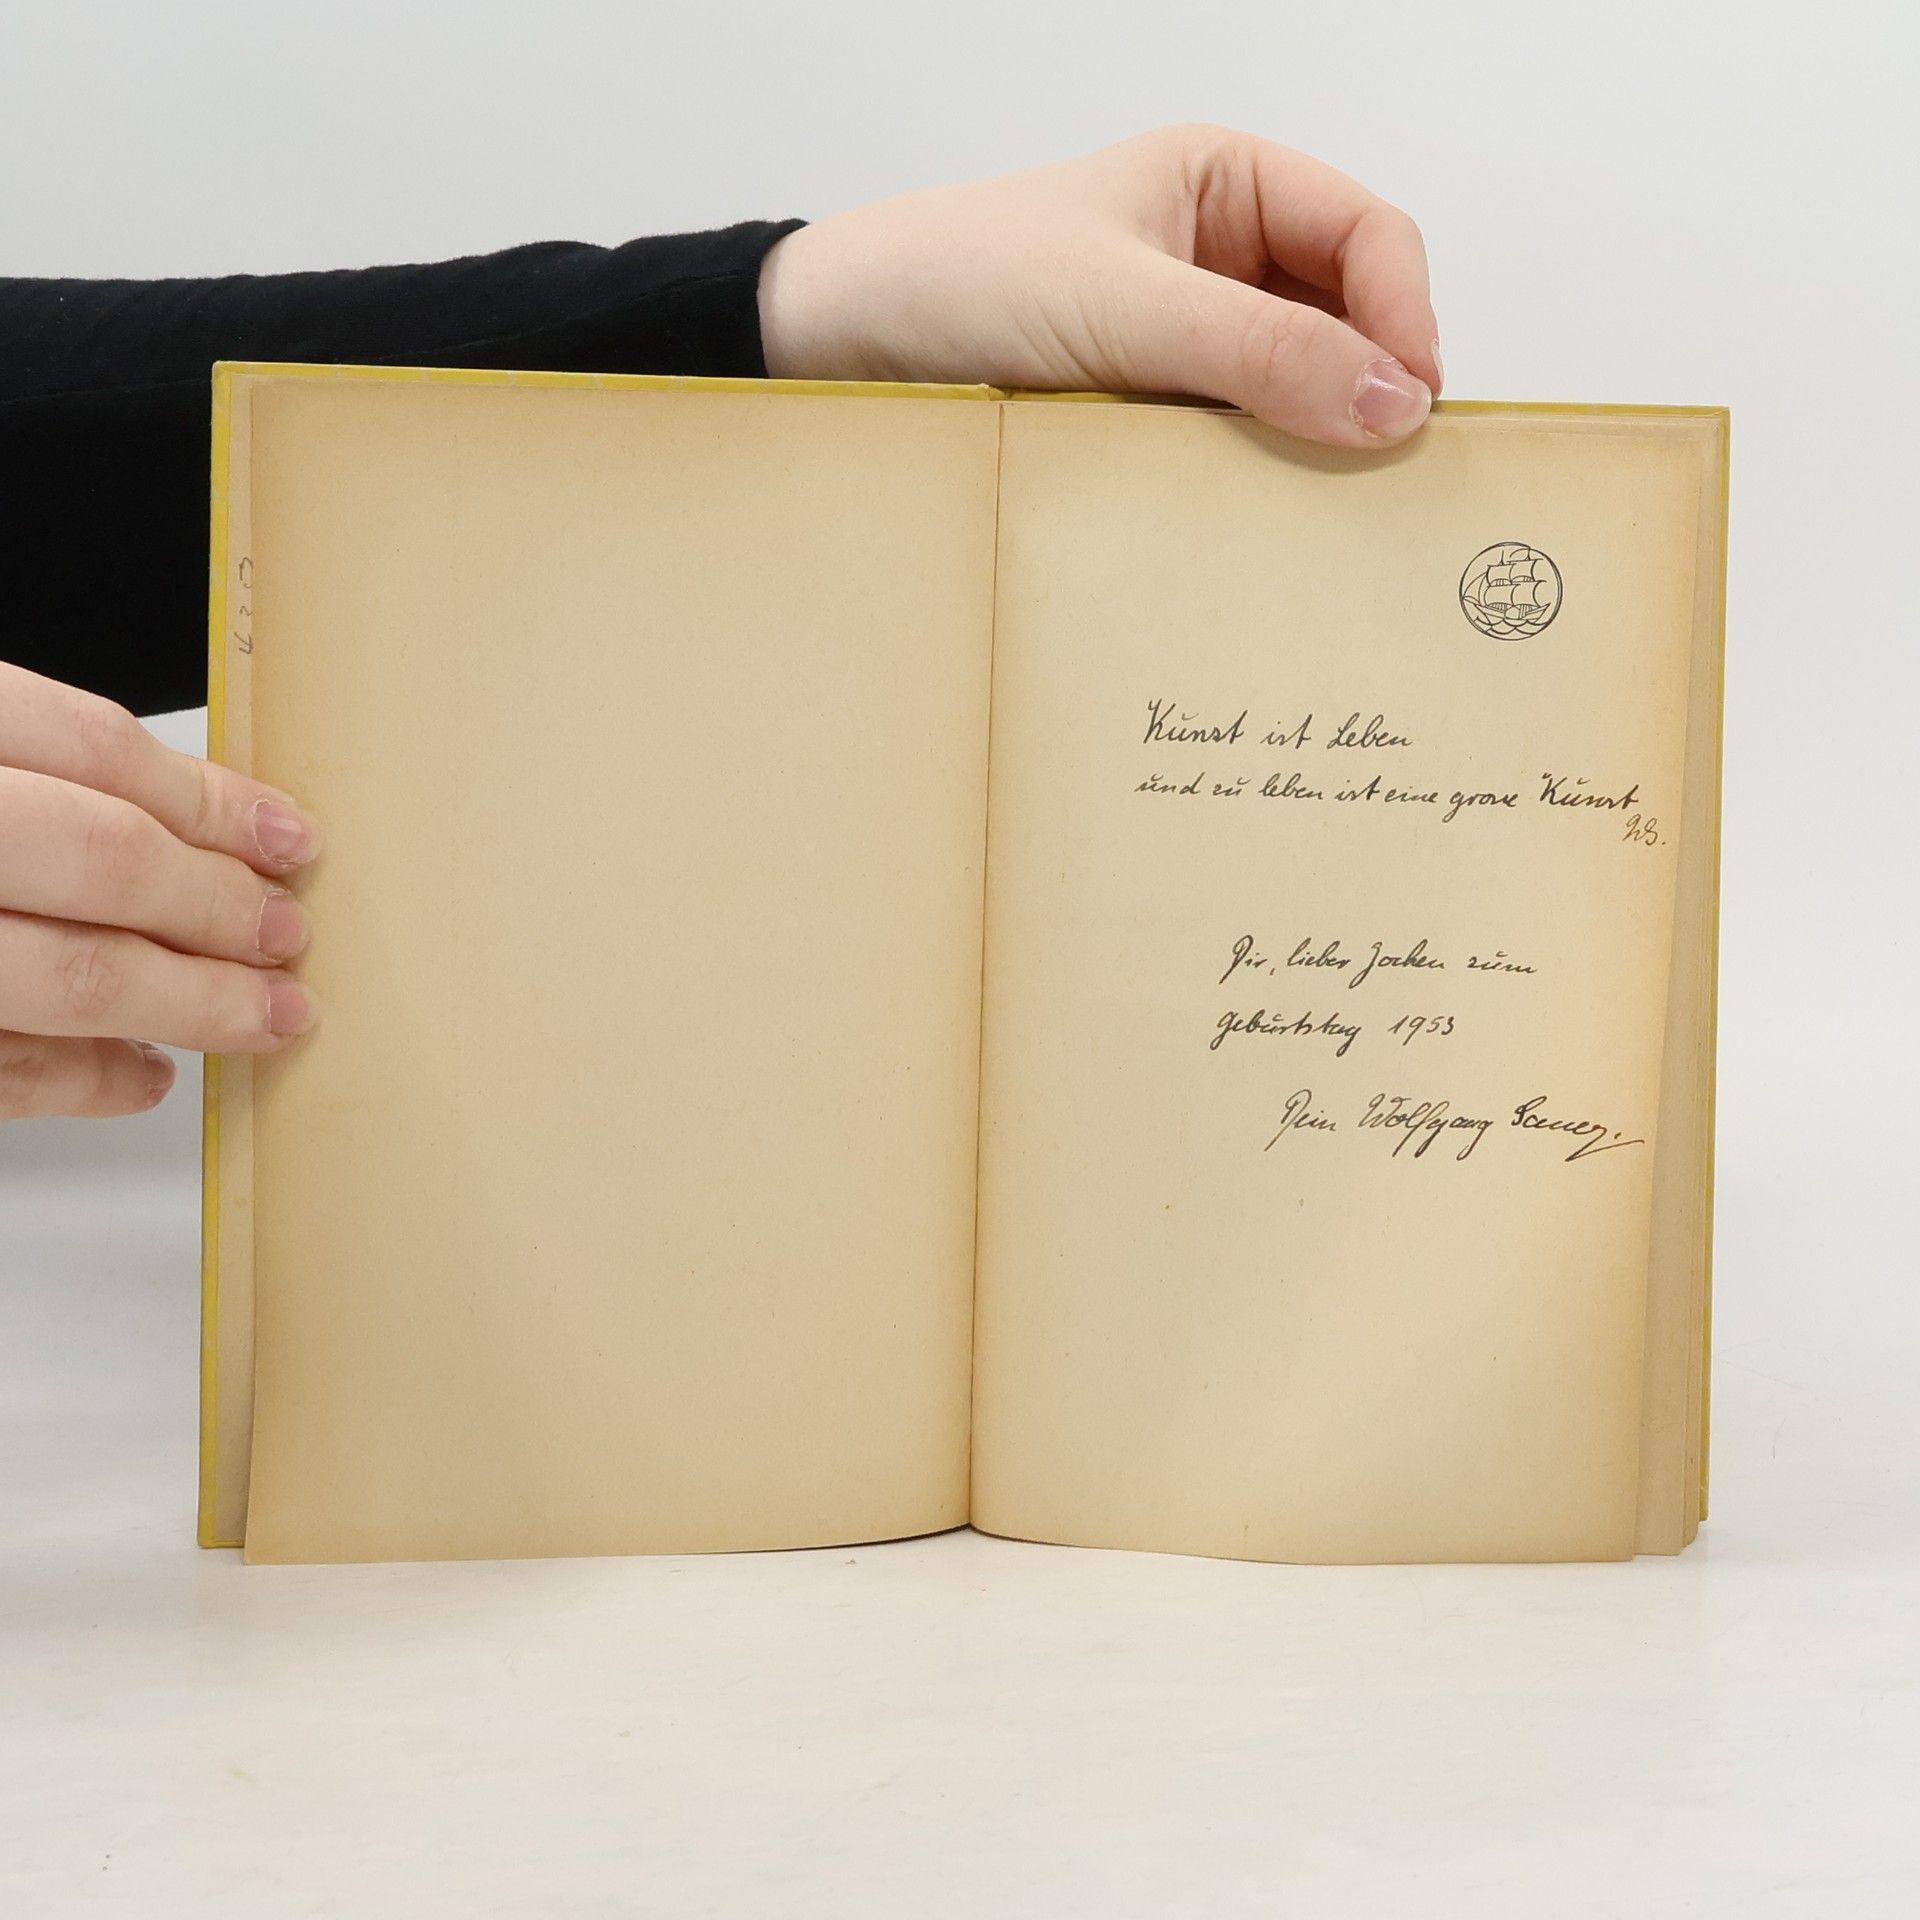 420
Kunst ist Leben
und zu leben ist eine grosse Kunst
WS.
Dir, lieber Jochen zum
Geburtstag 1953
Dein Wolfgang Sauer.